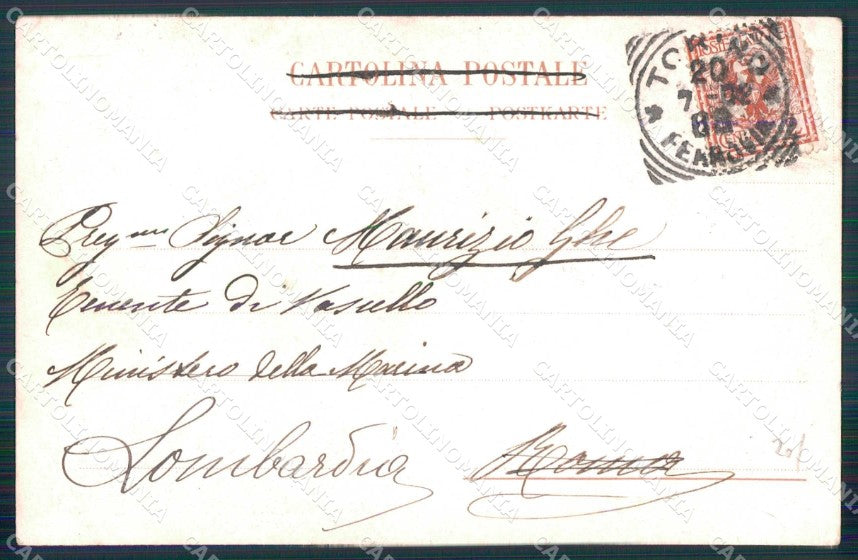 CARTOLINA POSTALE
CARTE POSTALE POSTKARTE
TORINO
20
7-
FERROVIA
Preg.mo Signor Maurizio Ghe
Tenente di Vascello
Ministero della Marina
Lombardia Roma
CARTOLINOMANIA